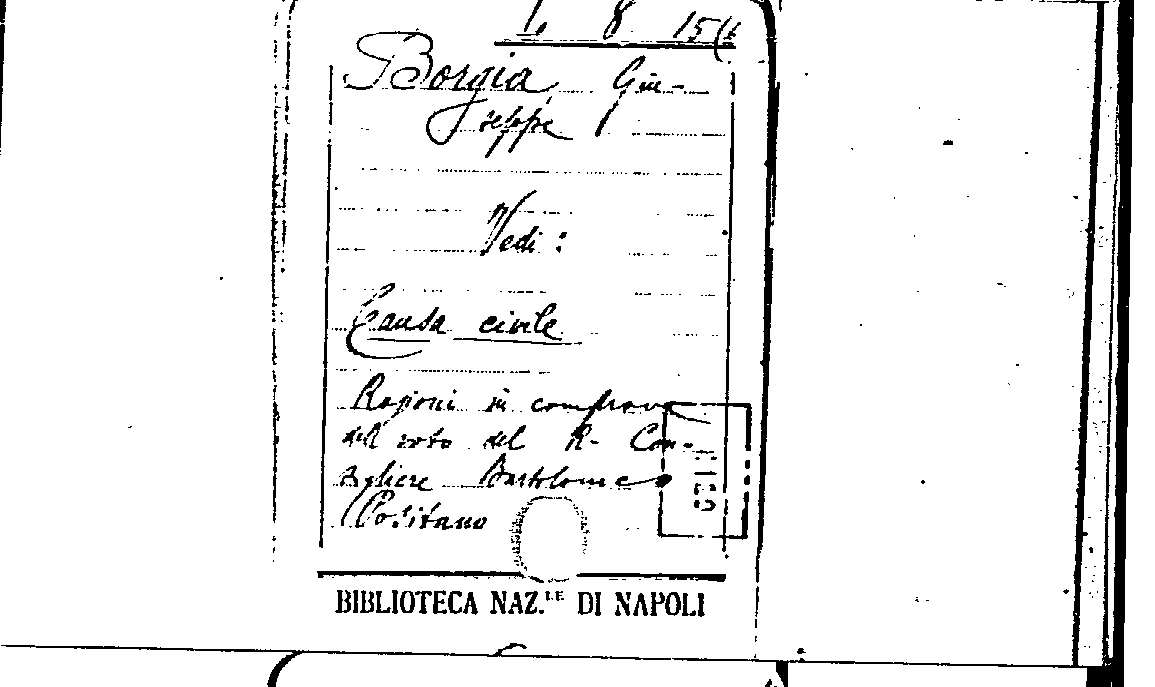 1. 8 15(6
Borgia, Giu-
seppe
Vedi:
Causa civile
Ragioni in comprova
del voto del R. Con-
sigliere Bartolomeo
Positano
BIBLIOTECA NAZ.LE DI NAPOLI